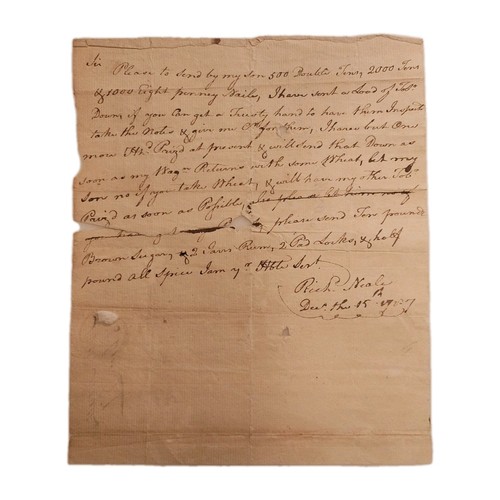 Sir
Please to send by my son 500 Double Tens, 2000 Tens
& 1000 Eight penney Nails, I have sent a Load of Tobo
Down, if you Can get a Trusty hand to have them Inspected
take the Notes & give me Cr for them, I have but One
more Hhd Prizd at present & will send that Down as
soon as my Wagn Returns with some Wheat, let my
son no if you take Wheat, & will have my other Tobo
Prizd as soon as Possible,
please send Ten pounds
Brown Suger, & 2 Galls Rum, 2 Pad Locks, & half
pound all Spice I am yr Hble Sert
Richd Neale
Decr the 15th